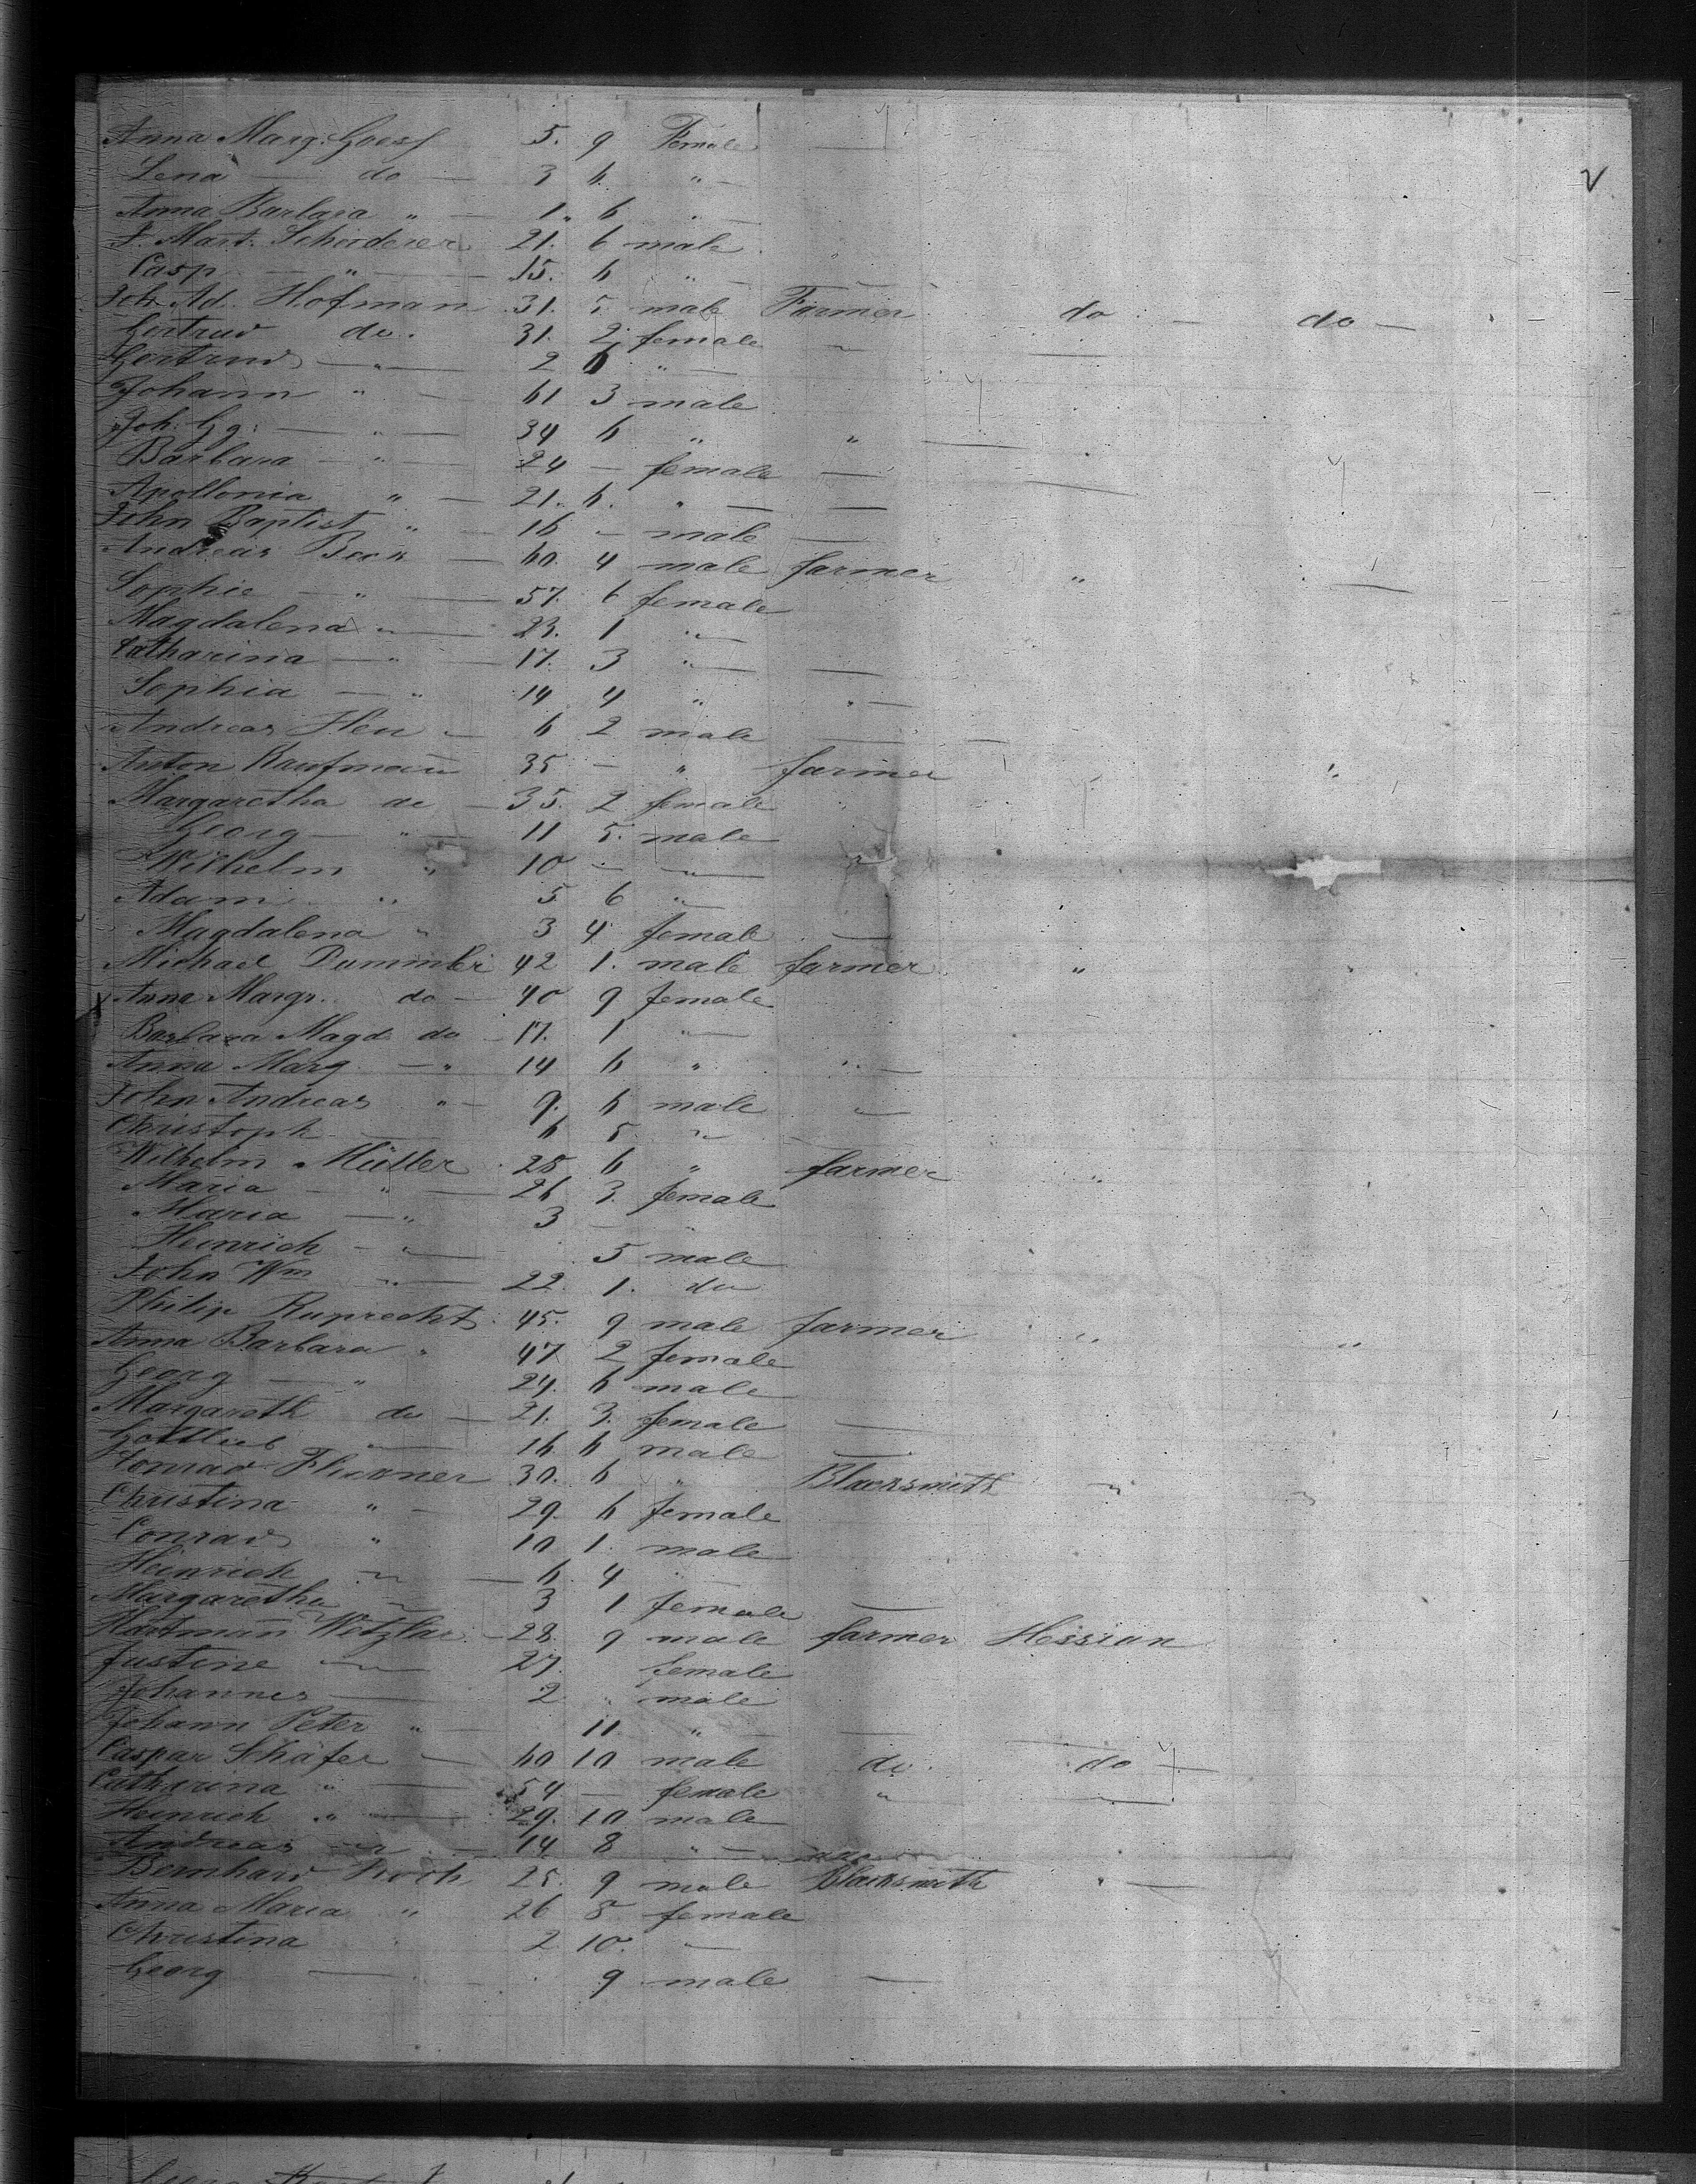 Anna Marg. Goess 5. 9 Female —
Lena — do — 3 6. " —
Anna Barbara " — 1. 6 " —
J. Mart. Schorderer 21. 6 male
Casp — " — 15. 6 "
Joh. Ad. Hofman 31. 5 male Farmer do — do —
Gertrud do. 31. 2 female "
Gertrud — " — 2 6 " —
Johann " — 61 3 male
Joh. Gg. — " — 34 6 " " —
Barbara — " — 24 — female —
Apollonia " — 21. 6. " — —
John Baptist " — 16 — male —
Andreas Beck — 60. 4 male farmer "
Sophie — " — 57. 6 female
Magdalena " — 23. 1 " —
Catharina — " — 17. 3 " — —
Sophia — " 14 4 " " —
Andreas — 6 2 male —
Anton Kaufmann 35 — " farmer "
Margaretha do — 35. 2 female
Georg — " — 11 5. male
Wilhelm " 10 — " — "
Adam " 5 6 " —
Magdalena " 3 4 female —
Michael 42 1. male farmer " "
Anna Margr. do — 40 9 female
Barbara Magd. do — 17. 1 " —
Anna Marg. — " 14 6 " " —
John Andreas " — 9. 6 male "
Christoph — 6 5 "
Wilhelm Müller 25 6 " farmer "
Maria — " — 26 3. female
Maria — " 3 — "
Heinrich — " — 5 male
John Wm " — 22. 1. do
Philip Ruprecht 45. 9 male farmer " "
Anna Barbara " 47 2 female
Georg — " 24. 6 male
Margareth do — 21. 3. female —
Gottlieb " — 16 6 male —
Conrad 30. 6 " Blacksmith " "
Christina " — 29. 6 female
Conrad " 10 1. male
Heinrich " — 6. 4 " —
Margaretha " 3 1 female —
Hartmann Wetzlar — 28. 9 male farmer Hessian
Justine " — 27. female
Johannes — 2 " male
Johann Peter " — 11. " — —
Caspar Schäfer — 60 10 male do. do —
Catharina " — 54 — female " —
Heinrich " — 29. 10 male
Andreas " — 14 8 " —
Bernhard Koch 25. 9 male Blacksmith " —
Anna Maria " 26 8 female
Christina 2 10. —
Georg — 9 male —